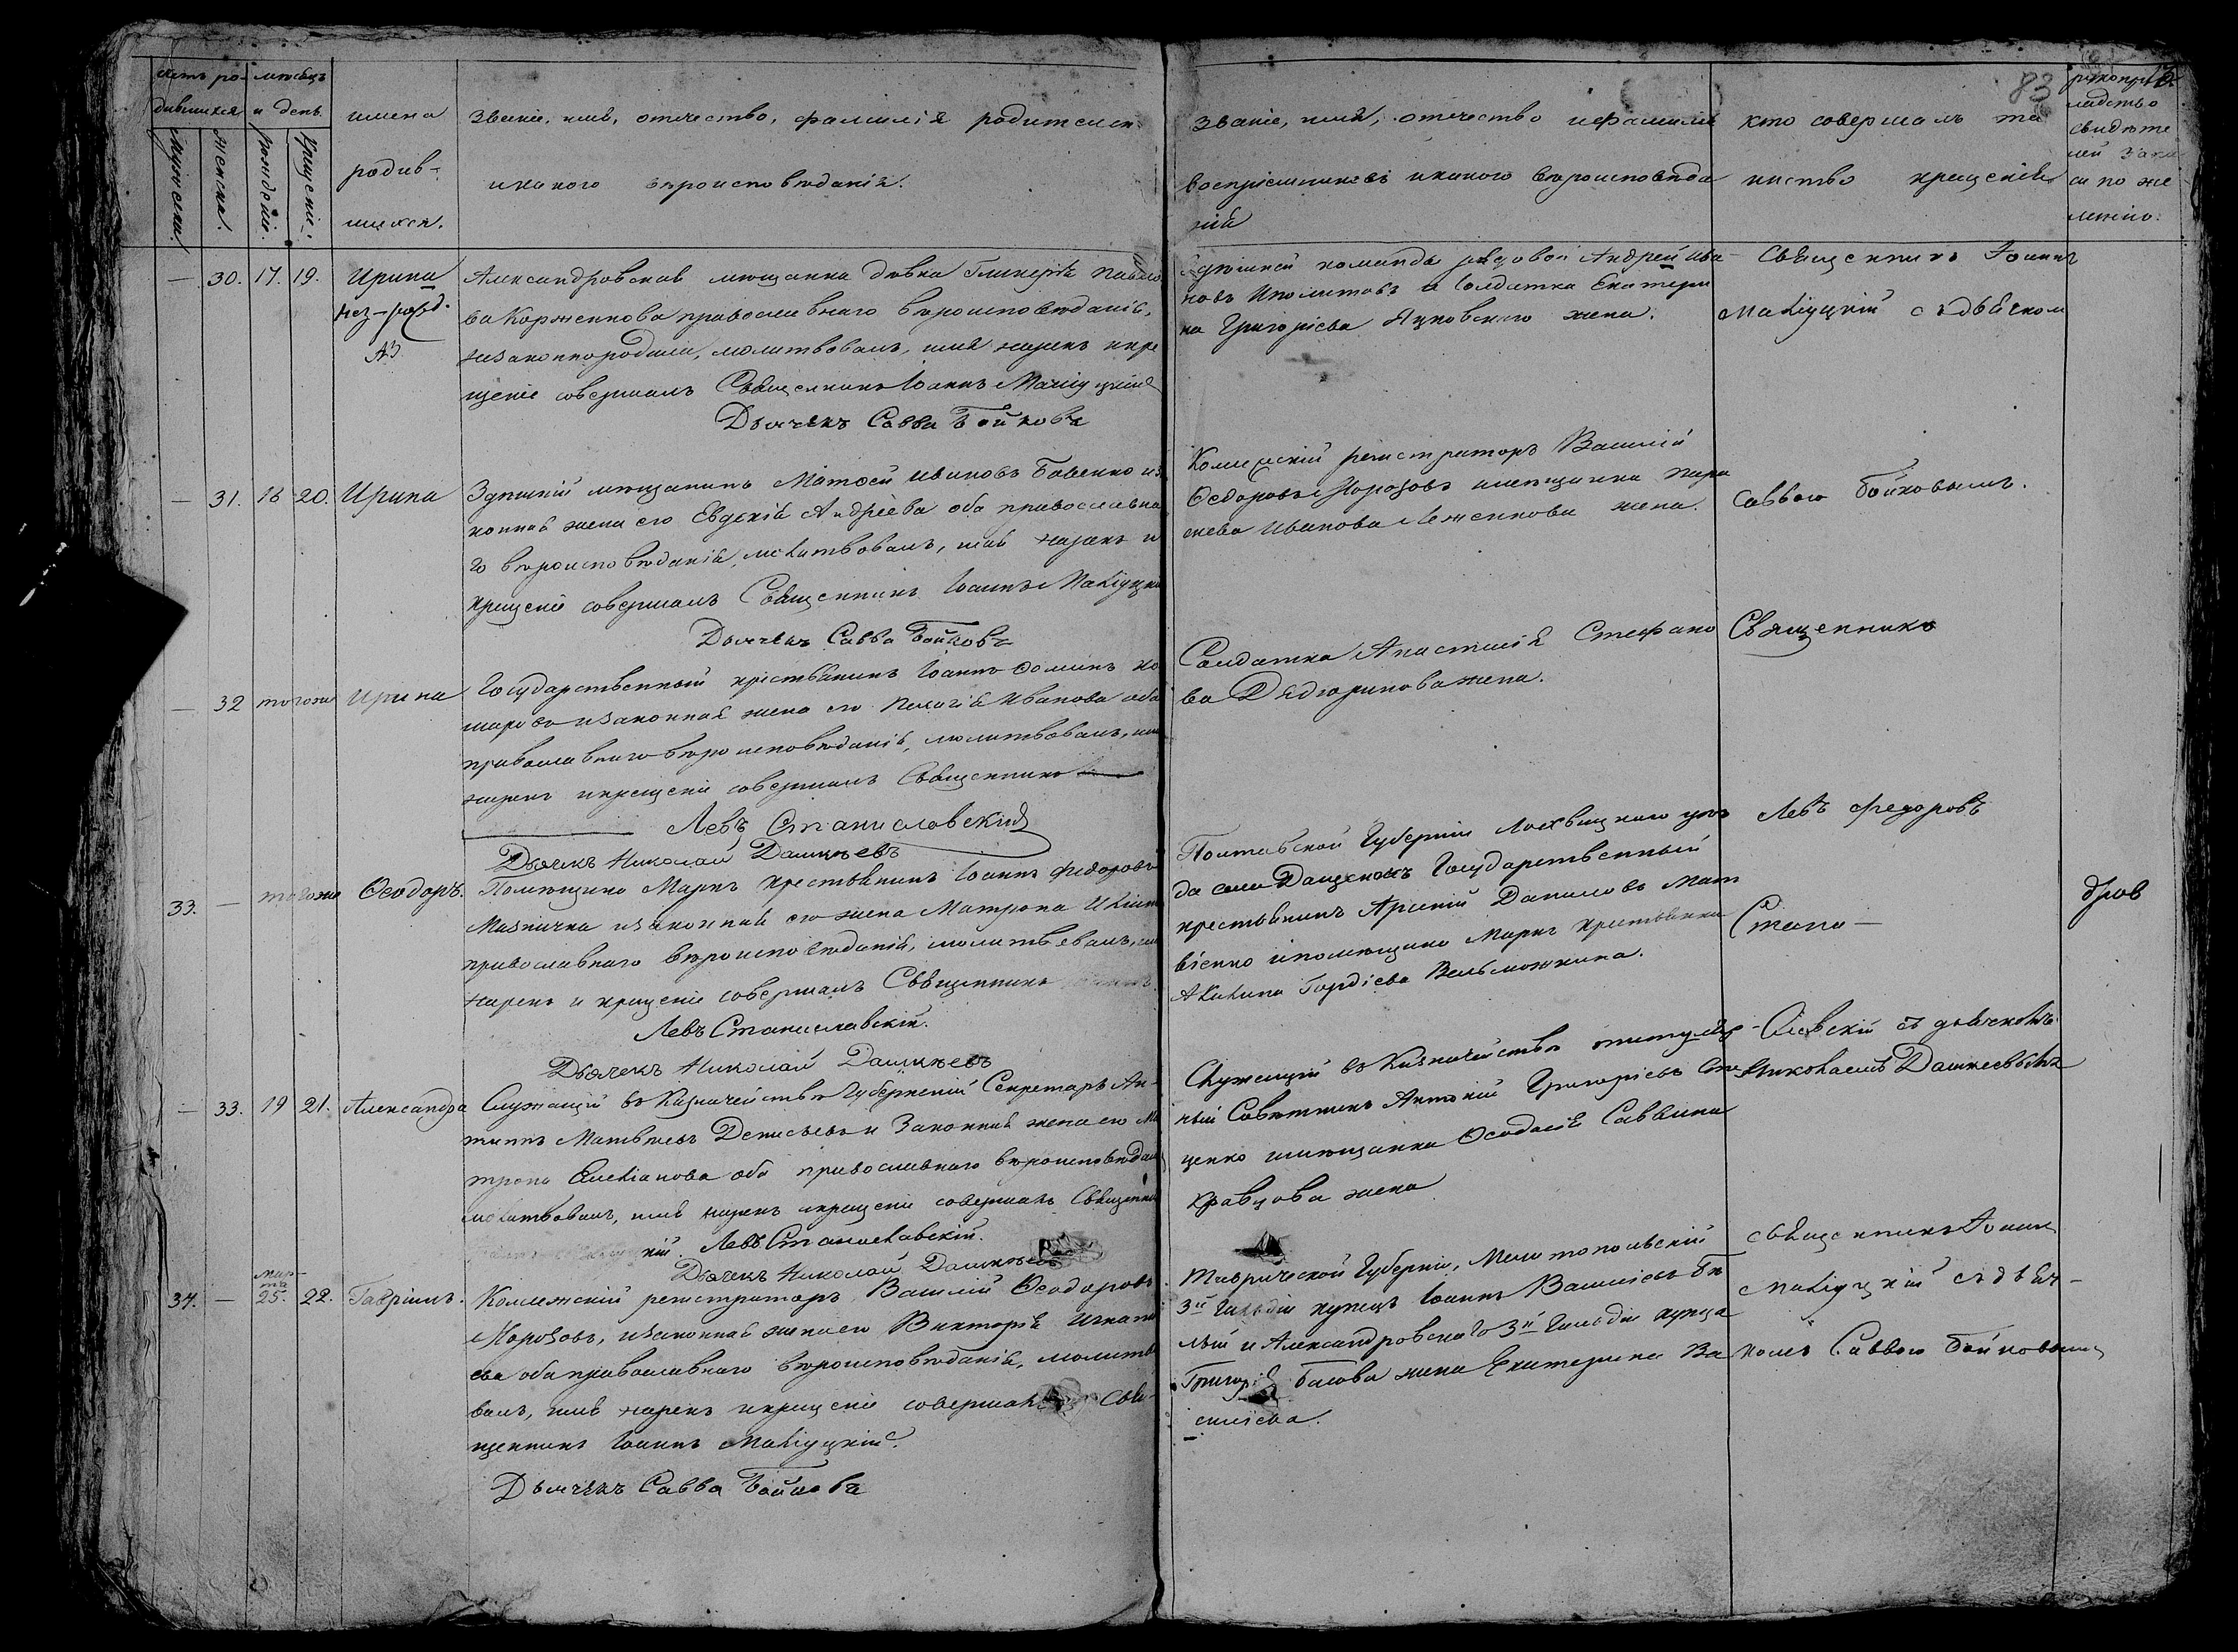 83
счетъ ро-
дившихся
мужеска.
женска.
мѣсяцъ
и день.
рождѣнія.
крещеніе.
имена
родив-
шихся.
Званіе, имя, отчество, фамилія родителей
и какого вѣроисповѣданія.
Званіе, имя, отчество и фамилія
воспріемниковъ и какого вѣроисповѣда
нія
кто совершалъ та
инство крещенія
рукопри
кладство
свидѣте
лей запи
си по же
ланію.
— 30. 17. 19. Ирина
нез-рожд.
Александровская мѣщанка дѣвка Гликерія Павло
ва Корженкова православнаго вѣроисповѣданія,
незаконнородила, молитвовалъ, имя нарекъ и кре
щеніе совершалъ Священникъ Іоаннъ
Дьячекъ Савва Бойковъ
Здѣшней команды рядовой Андрей Ива
новъ Иполитовъ и Солдатка Екатери
на Григоріева Яцковскаго жена.
Священникъ Іоаннъ
съ дьячком
— 31. 18 20. Ирина
Здѣшній мѣщанинъ Матѳей Ивановъ Бабенко и за
конная жена его Евдокія Андрѣева оба православна
го вѣроисповѣданія, молитвовалъ, имя нарекъ и
крещеніе совершалъ Священникъ Іоаннъ
Дьячекъ Савва Бойковъ
Колежскій регистраторъ Василій
Ѳедоровъ Морозовъ и мѣщанка Пара
скева Иванова жена.
Саввою Бойковымъ.
— 32 тогоже Ирина
Государственный крестьянинъ Іоаннъ Ѳоминъ Ко
маръ и законная жена его Пелагія Иванова оба
православнаго вѣроисповѣданія, молитвовалъ, имя
нарекъ и крещеніе совершалъ Священникъ
Левъ Станиславскій
Дьячекъ Николай Дашкѣевъ
Солдатка Анастасія Стефано
ва Дядюринова жена.
Священникъ
33. — тогоже Ѳеодоръ.
Помѣщика Маркъ крестьянинъ Іоаннъ Федоровъ
Мазничка и законная его жена Матрона
православнаго вѣроисповѣданія, молитвовалъ, имя
нарекъ и крещеніе совершалъ Священникъ
Левъ Станиславскій.
Дьячекъ Николай Дашкѣевъ
Полтавской Губерніи Лохвицкаго уѣз
да села Государственный
крестьянинъ Арсеній Даниловъ Мат
віенко и помѣщика Маркъ крестьянка
Акилина Гордіева Вельможкина.
Левъ Федоровъ
Стани-
— 33. 19 21. Александра
Служащій въ Казначействѣ Губернскій Секретарь Ан-
типъ Матвѣевъ Денисьевъ и Законная жена его Ма
трона Емельянова оба православнаго вѣроисповѣданія
молитвовалъ, имя нарекъ и крещеніе совершалъ Священникъ
Левъ Станиславскій.
Дьячекъ Николай Дашкѣевъ
Служащій въ Казначействѣ титуляр-
ный Совѣтникъ Антоній Григоріевъ Сте
ценко и мѣщанка Ѳеодосія Саввина
Кравцова жена
славскій съ дьячкомъ
Николаемъ Дашкеевымъ
34. — мар-
та
25. 22. Гавріилъ.
Колежскій регистраторъ Василій Ѳеодоровъ
Морозовъ, и законная жена его Викторія Игнать
ева оба православнаго вѣроисповѣданія, молитво
валъ, имя нарекъ и крещеніе совершалъ Свя-
щенникъ Іоаннъ
Дьячекъ Савва Бойковъ
Таврической Губерніи, Мелитопольскій
3й Гильдіи купецъ Іоаннъ Васильевъ Бѣ
лый и Александровскаго 3й Гильдіи купца
Григорія Басова жена Екатерина Ва
силіева.
Священникъ Іоанн
съ дьяч-
комъ Саввою Бойковымъ